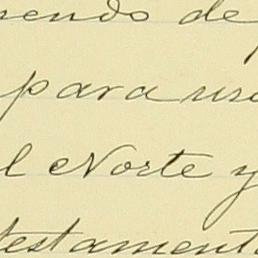 sendo de
para us
l Norte y
testament